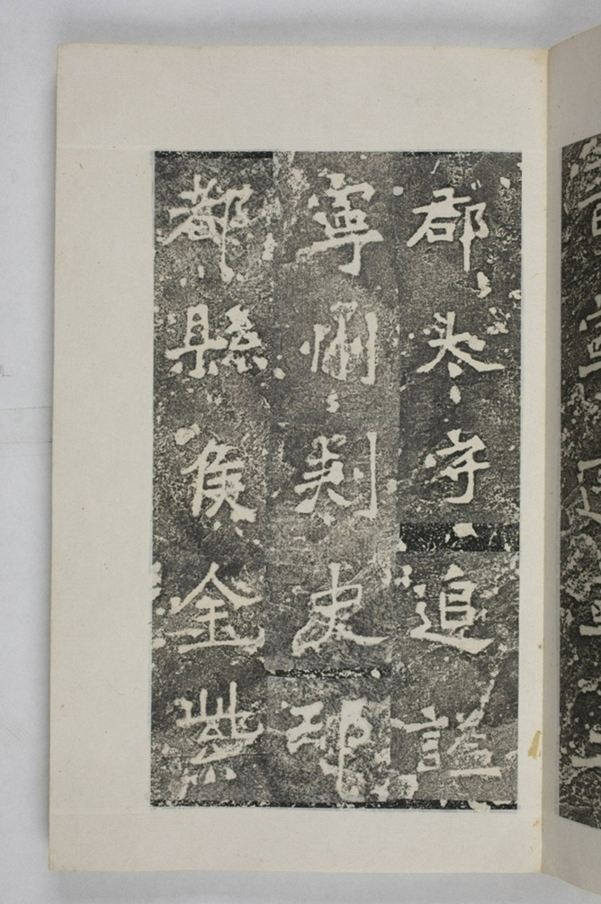 郡太守追謚
寧州刺史邛
都縣侯金紫